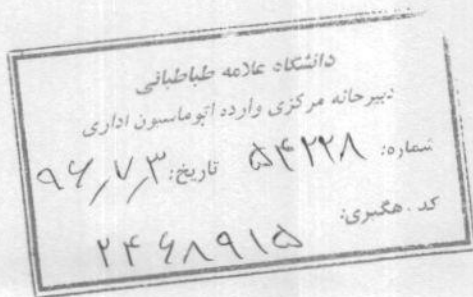 دانشگاه علامه طباطبائی
دبیرخانه مرکزی وارده اتوماسیون اداری
شماره: ۵۴۲۲۸ تاریخ: ۹۶/۷/۳
کد رهگیری: ۲۴۶۸۹۱۵